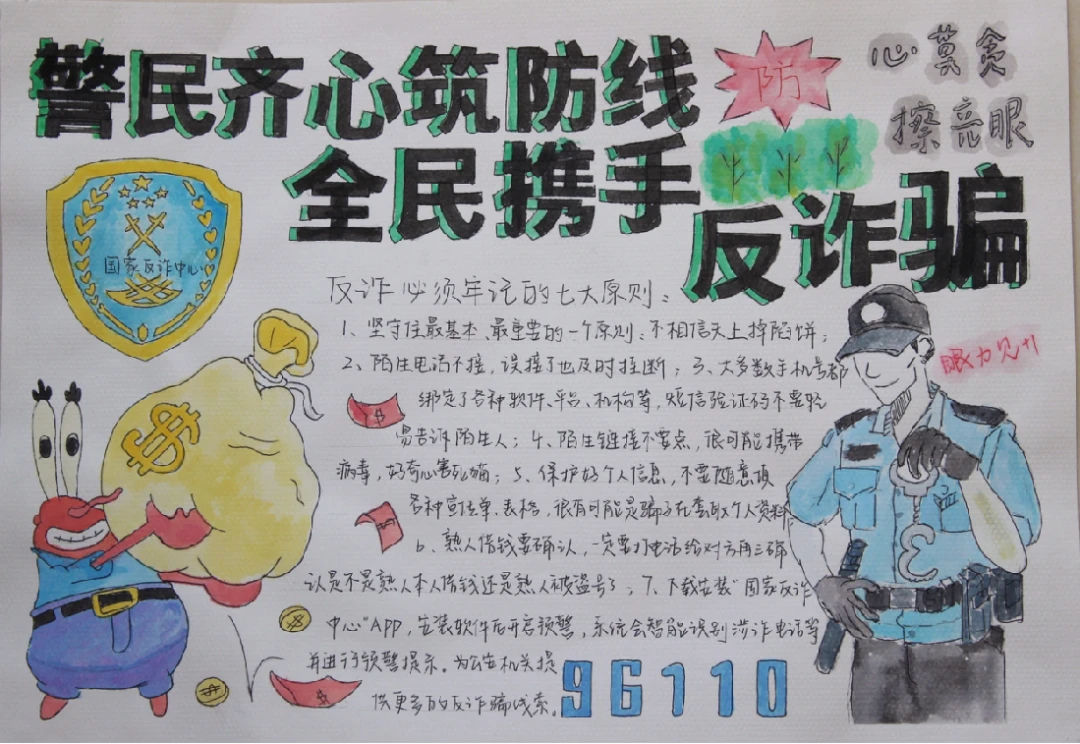 警民齐心筑防线
防
心莫贪
擦亮眼
全民携手
反诈骗
国家反诈中心
反诈必须牢记的七大原则：
1、坚守住最基本、最重要的一个原则：不相信天上掉陷饼；
2、陌生电话不接，误接了也及时挂断；3、大多数手机号都
绑定了各种软件、平台、机构等，短信验证码不要轻
易告诉陌生人；4、陌生链接不要点，很可能携带
病毒，好奇心害死猫；5、保护好个人信息，不要随意填
各种宣传单、表格，很有可能是骗子在套取个人资料
6、熟人借钱要确认，一定要打电话给对方再三确
认是不是熟人本人借钱还是熟人被盗号了；7、下载安装“国家反诈
中心”APP，安装软件后开启预警，系统会智能识别涉诈电话等
并进行预警提示。为公安机关提
供更多的反诈骗线索。
眼力见+1
96110